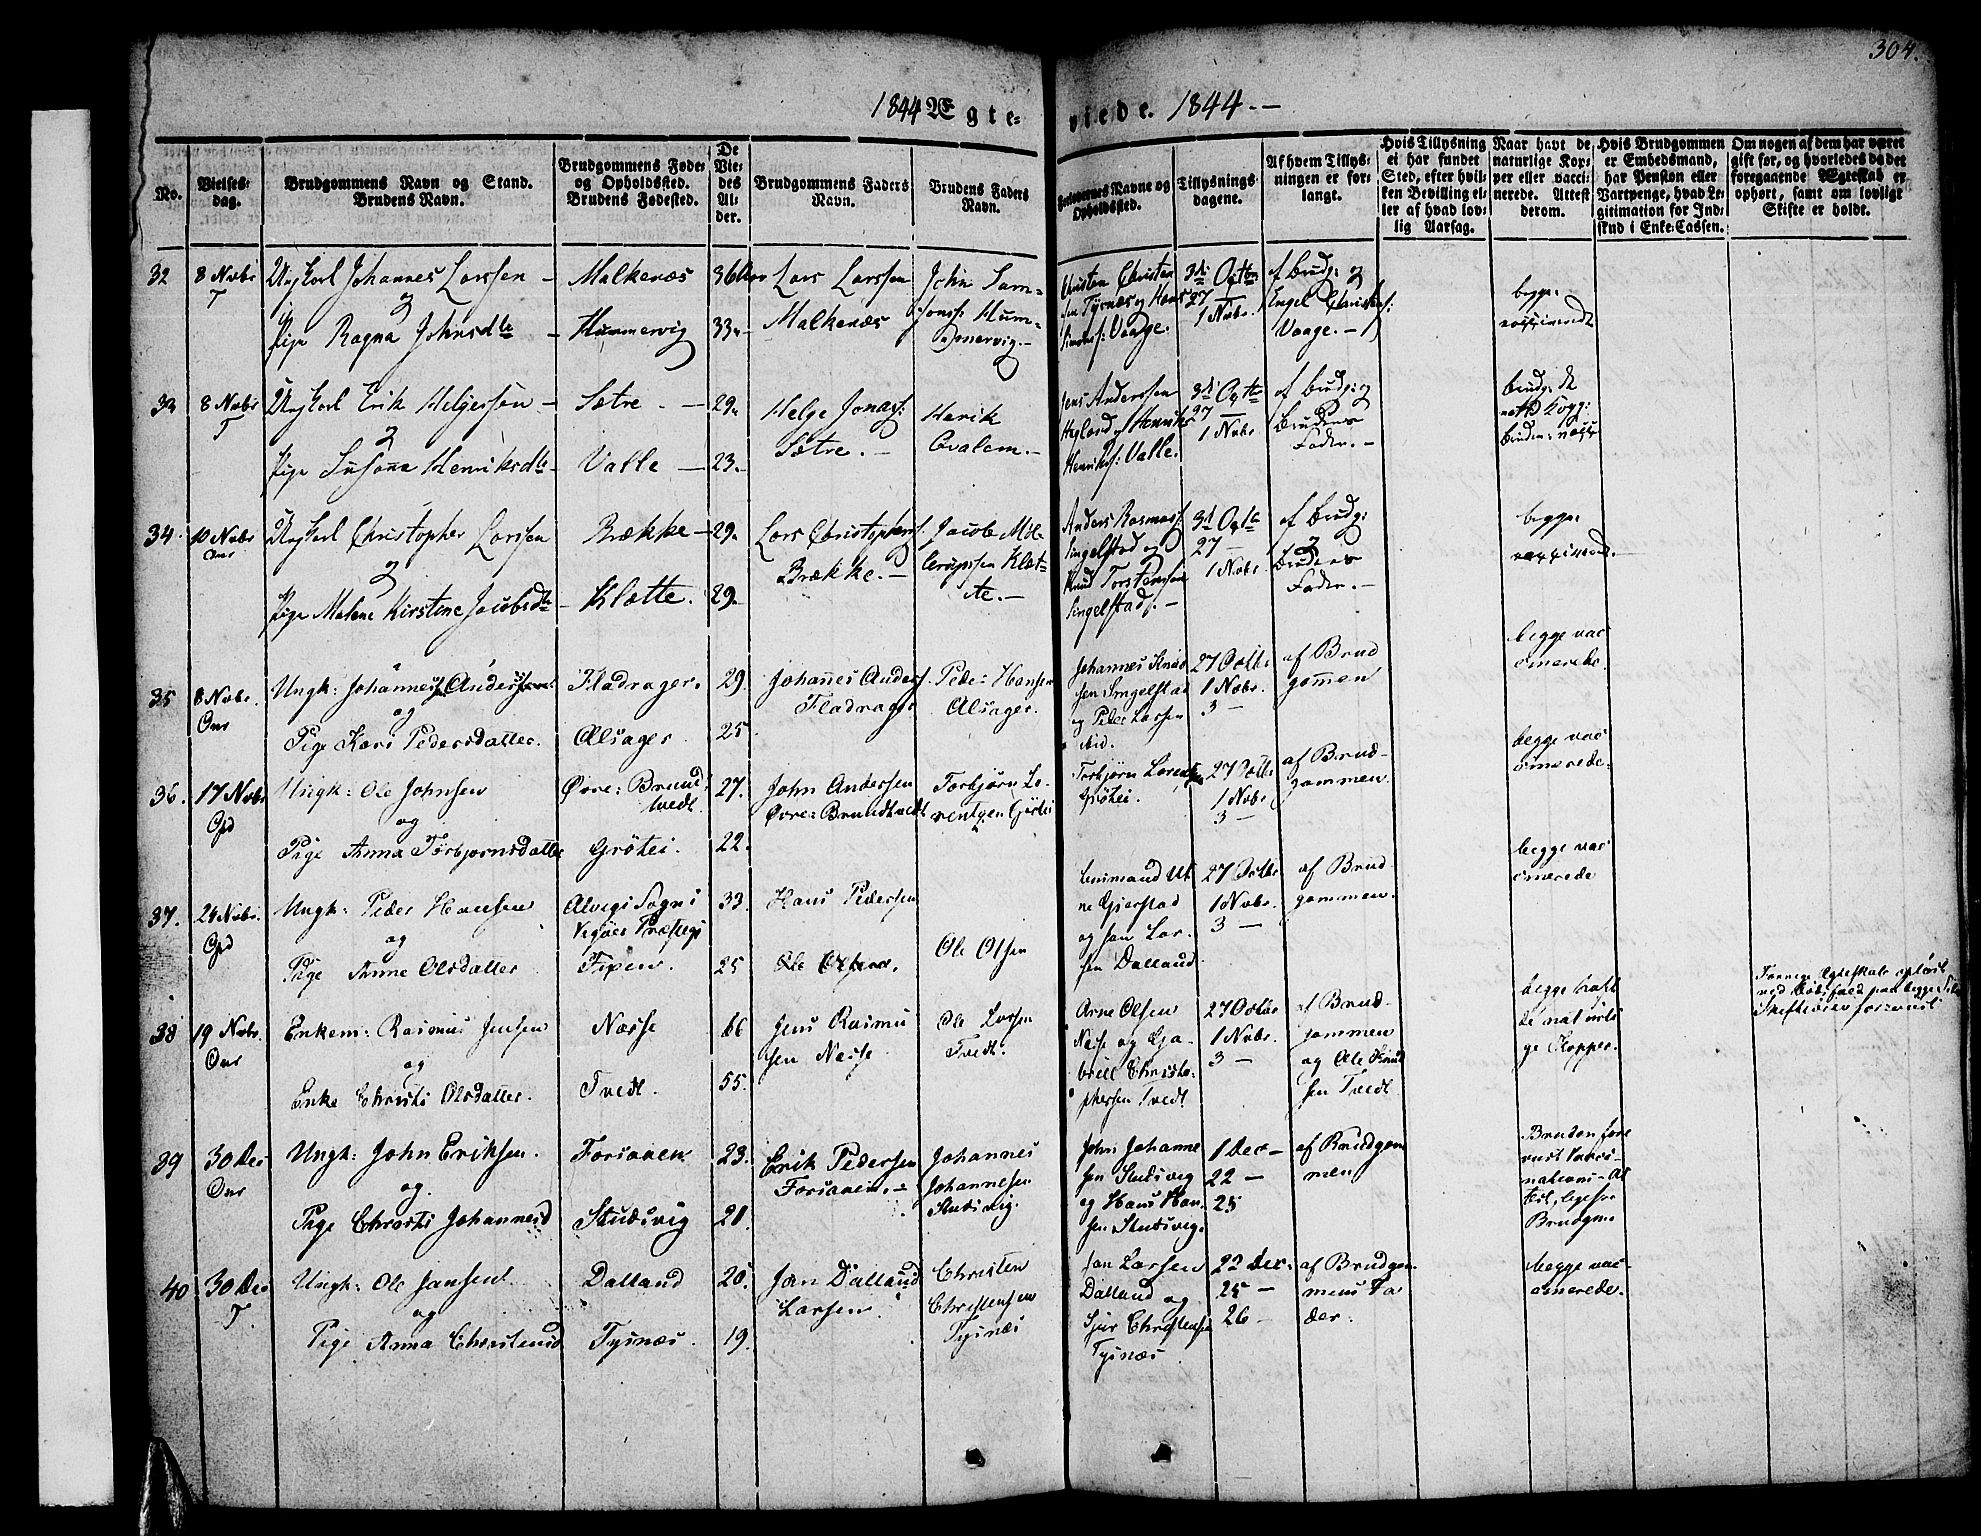 304.
1844 Ægte=
viede. 1844.-
No.
Vielses=
dag.
Brudgommens Navn og Stand.
Brudens Navn.
Brudgommens Føde=
og Opholdssted.
Brudens Fødested.
De
Vie=
des
Al=
der.
Brudgommens Faders
Navn.
Brudens Faders
Navn.
Forlovernes Navne og
Opholdssted.
Tillysnings=
dagene.
Af hvem Tillys=
ningen er for=
langt.
Hvis Tillysning
ei har fundet
Sted, efter hvil=
ken Bevilling el=
ler af hvad lov=
lig Aarsag.
Naar havt de
naturlige Kop=
per eller vacci=
nerede. Attest
derom.
Hvis Brudgommen
er Embedsmand,
har Pension eller
Vartpenge, hvad Le=
gitimation for Ind=
skud i Enke=Cassen.
Om nogen af dem har været
gift før, og hvorledes da det
foregaaende Ægteskab er
ophørt, samt om lovligt
Skifte er holdt.
32
8 Novbr
T
Ungkarl Johannes Larssen -
og
Pige Ragna Johnsdtr -
Malkenæs
Hummervig
36
33
Lars Larssen
Malkenæs
John Sam=
sons: Hum=
mervig.-
Christen Christen
sen Tysnæs og Hans
Simons: Vaage.
3di Octbr
27 -
1 Novbr.
af Brudg: og
Engel Christens:
Vaage.-
begge
vaccinerede
33
8 Novbr
T
Ungkarl Erik Helgessen -
og
Pige Susane Henriksdtr -
Sætre. -
Valle -
29.
23.
Helge Jonas:
Sætre. -
Henrik
Evalem.-
Jens Anderssen
Henriks: Valle.
3di Octbr
27 -
1 Novbr
af Brudg: og
Brudens
Fader.-
Brudg: de
natl Kopp:
Bruden: vacc:
34.
10 Novbr
Ons
Ungkarl Christopher Larssen
og
Pige Malene Kirstine Jacobsdtr -
Brække -
Klætte.
29.
29.
Lars Christophers:
Brække. -
Jacob Mol
Klæt=
te.-
Anders Rasmus:
Singelstad og
Knud Torstensen
Singelstad.-
3di Octbr
27 -
1 Novbr.
af Brudg:
og
Brudens
Fader.-
begge
vaccinered.-
35
8 Novbr.
Ons
Ungk: Johannes Anderssen
og
Pige Kari Pedersdatter.
Fladrager.
Alsager.
29.
25.
Johannes Anders.
Fladrager
Peder Hansen
Alsager.
Johannes Knud
sen Singelstad
og Peder Larsen
ibid.
27 Octbr
1 Novbr.
3 -
af Brud
gommen
begge vac
cinerede.
36.
17 Novbr
Opd
Ungk: Ole Johnsen
og
Pige Anna Torbjørnsdatter
Øvre: Brund=
tvedt
Grøtei.
27.
22.
John Andersen
Øvre: Brundtvedt
Torbjørn Lo=
rentzen Grøtei
Torbjørn Lorentzen
Grøtei.
27 Octbr
1 Novbr
3 -
af Brud=
gommen
begge vac
cinerede.
37.
24 Novbr.
Opd
Ungk: Peder Hansen
og
Pige Anne Olsdatter
Alvegs Sogn i
Tipen.
33.
25
Hans Pedersen
Ole Olsen.
Ole Olsen
Lensmand Ut
ne Gjerstad
og Jan Lar=
sen Dalland.
27 Octbr
1 Novbr.
3 -
af Brud
gommen.
begge vac
cinerede
38
19 Novbr.
Ons
Enkem: Rasmus Jensen
og
Enke Christi Olsdatter.
Næsse
Tvedt.
66
55.
Jens Rasmus
sen Næsse.
Ole Larsen
Tvedt.
Arne Olsen
Næsse og Ga=
briel Christo=
phersen Tvedt
27 Octbr
1 Novbr.
3 -
af Brud=
gommen
og Ole Knud
sen Tvedt
begge havt
de naturli
ge Kopper.
Forrige Ægteskab opløst
ved Dødsfald paa begge Sider
Skifte
39
30 Dec
Ons
Ungk: John Eriksen.
og
Pige Christi Johannesd
Forsanen
Studsvig
23.
21.
Erik Pedersen
Forsanen.-
Johannes
Johannesen
Studsvig.
John Johanne
sen Studsvig
og Hans Han=
sen Studsvig.
1 Dec -
22 -
25
af Brudgom
men
Bruden fore
viist Vacci=
nations=At
test, ligesaa
Brudgom.
40
30 Dec
T.
Ungk: Ole Jansen
og
Pige Anna Christensd
Dalland
Tysnæs
20.
19.
Jan Dalland
Larsen
Christen
Christensen
Tysnæs
Jan Larsen
Dalland og
Sjur Christensen
Tysnæs
22 Dec.
25 -
26 -
af Brudgom
mens Fa
der.
begge vac=
cinerede.